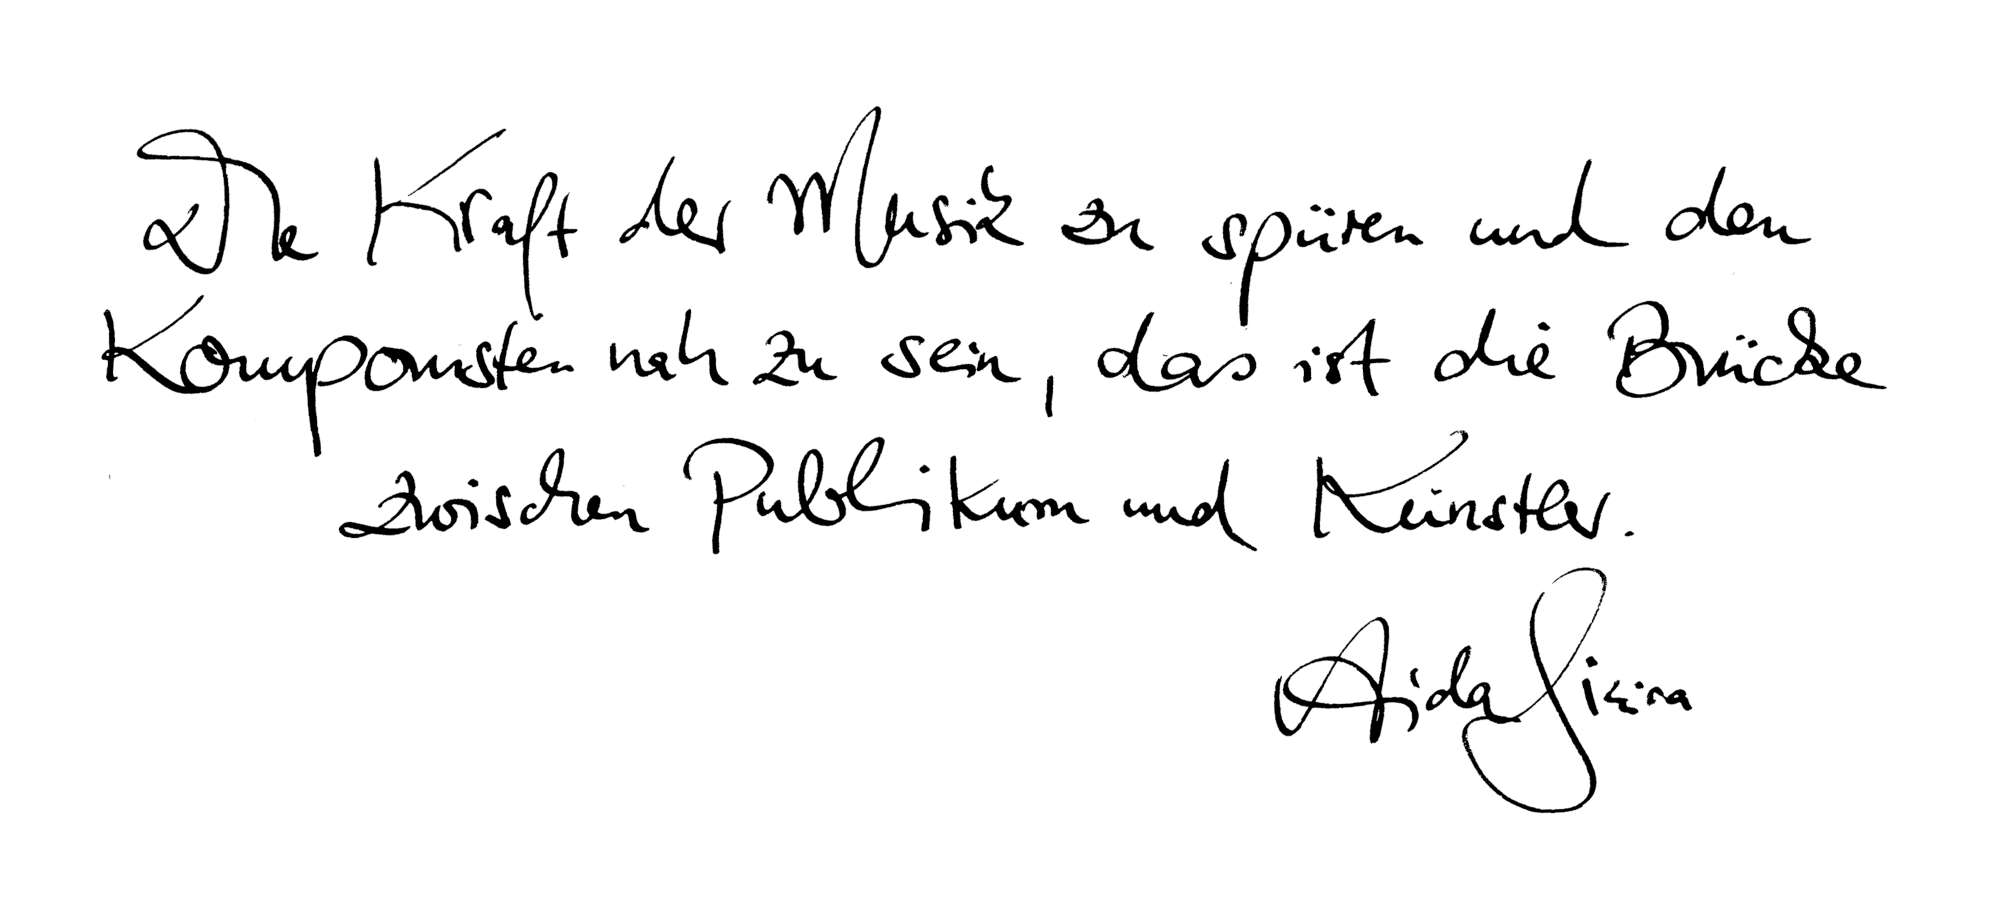 Die Kraft der Musik zu spüren und den
Komponisten nah zu sein, das ist die Brücke
zwischen Publikum und Künstler.
Aida